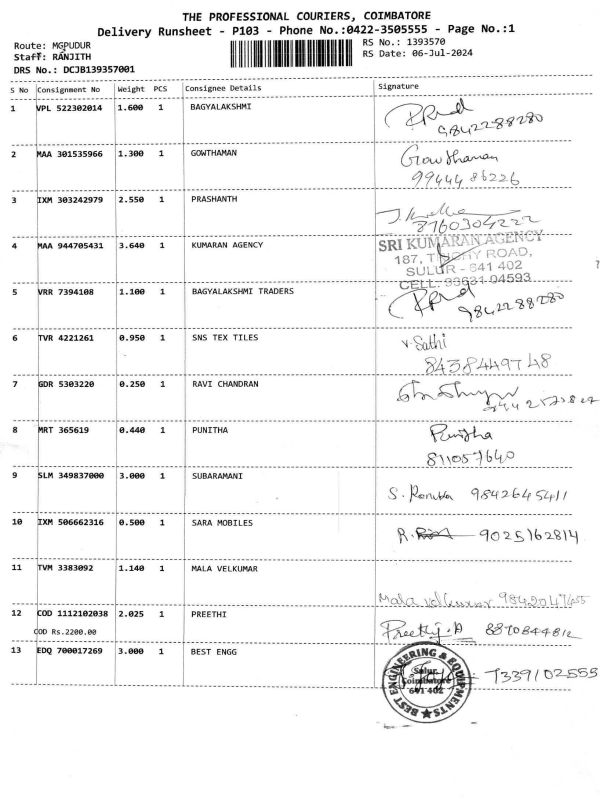 THE PROFESSIONAL COURIERS, COIMBATORE
Delivery Runsheet - P103 - Phone No.:0422-3505555 - Page No.:1
Route: MGPUDUR
RS No.: 1393570
Staff: RANJITH
RS Date: 06-Jul-2024
DRS No.: DCJB139357001
S No Consignment No Weight PCS Consignee Details Signature
1 VPL 522302014 1.600 1 BAGYALAKSHMI
9842288280
2 MAA 301535966 1.300 1 GOWTHAMAN Gowthaman
99444 86226
3 IXM 303242979 2.550 1 PRASHANTH
8760304222
4 MAA 944705431 3.640 1 KUMARAN AGENCY SRI KUMARAN AGENCY
187, TRICHY ROAD,
SULUR - 641 402
CELL: 93631 04593
5 VRR 7394108 1.100 1 BAGYALAKSHMI TRADERS
9842288280
6 TVR 4221261 0.950 1 SNS TEX TILES V. Sathi
8438449748
7 GDR 5303220 0.250 1 RAVI CHANDRAN
8 MRT 365619 0.440 1 PUNITHA Punitha
811057640
9 SLM 349837000 3.000 1 SUBARAMANI S. 9842645411
10 IXM 506662316 0.500 1 SARA MOBILES R. 9025162814
11 TVM 3383092 1.140 1 MALA VELKUMAR
Mala velkumar
12 COD 1112102038 2.025 1 PREETHI
COD Rs.2200.00
Preethi. A 8870844812
13 EDQ 700017269 3.000 1 BEST ENGG
BEST ENGINEERING & EQUIPMENTS
Sulur
Coimbatore
641 402
7339102555